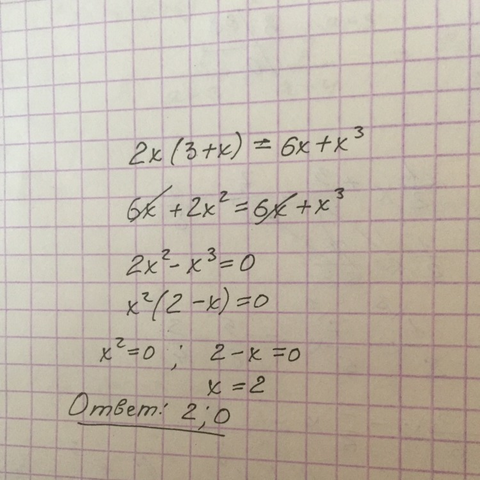 2x(3+x) = 6x+x³
6x +2x² = 6x +x³
2x²- x³=0
x²(2-x)=0
x²=0 ; 2-x=0
x=2
Ответ: 2;0